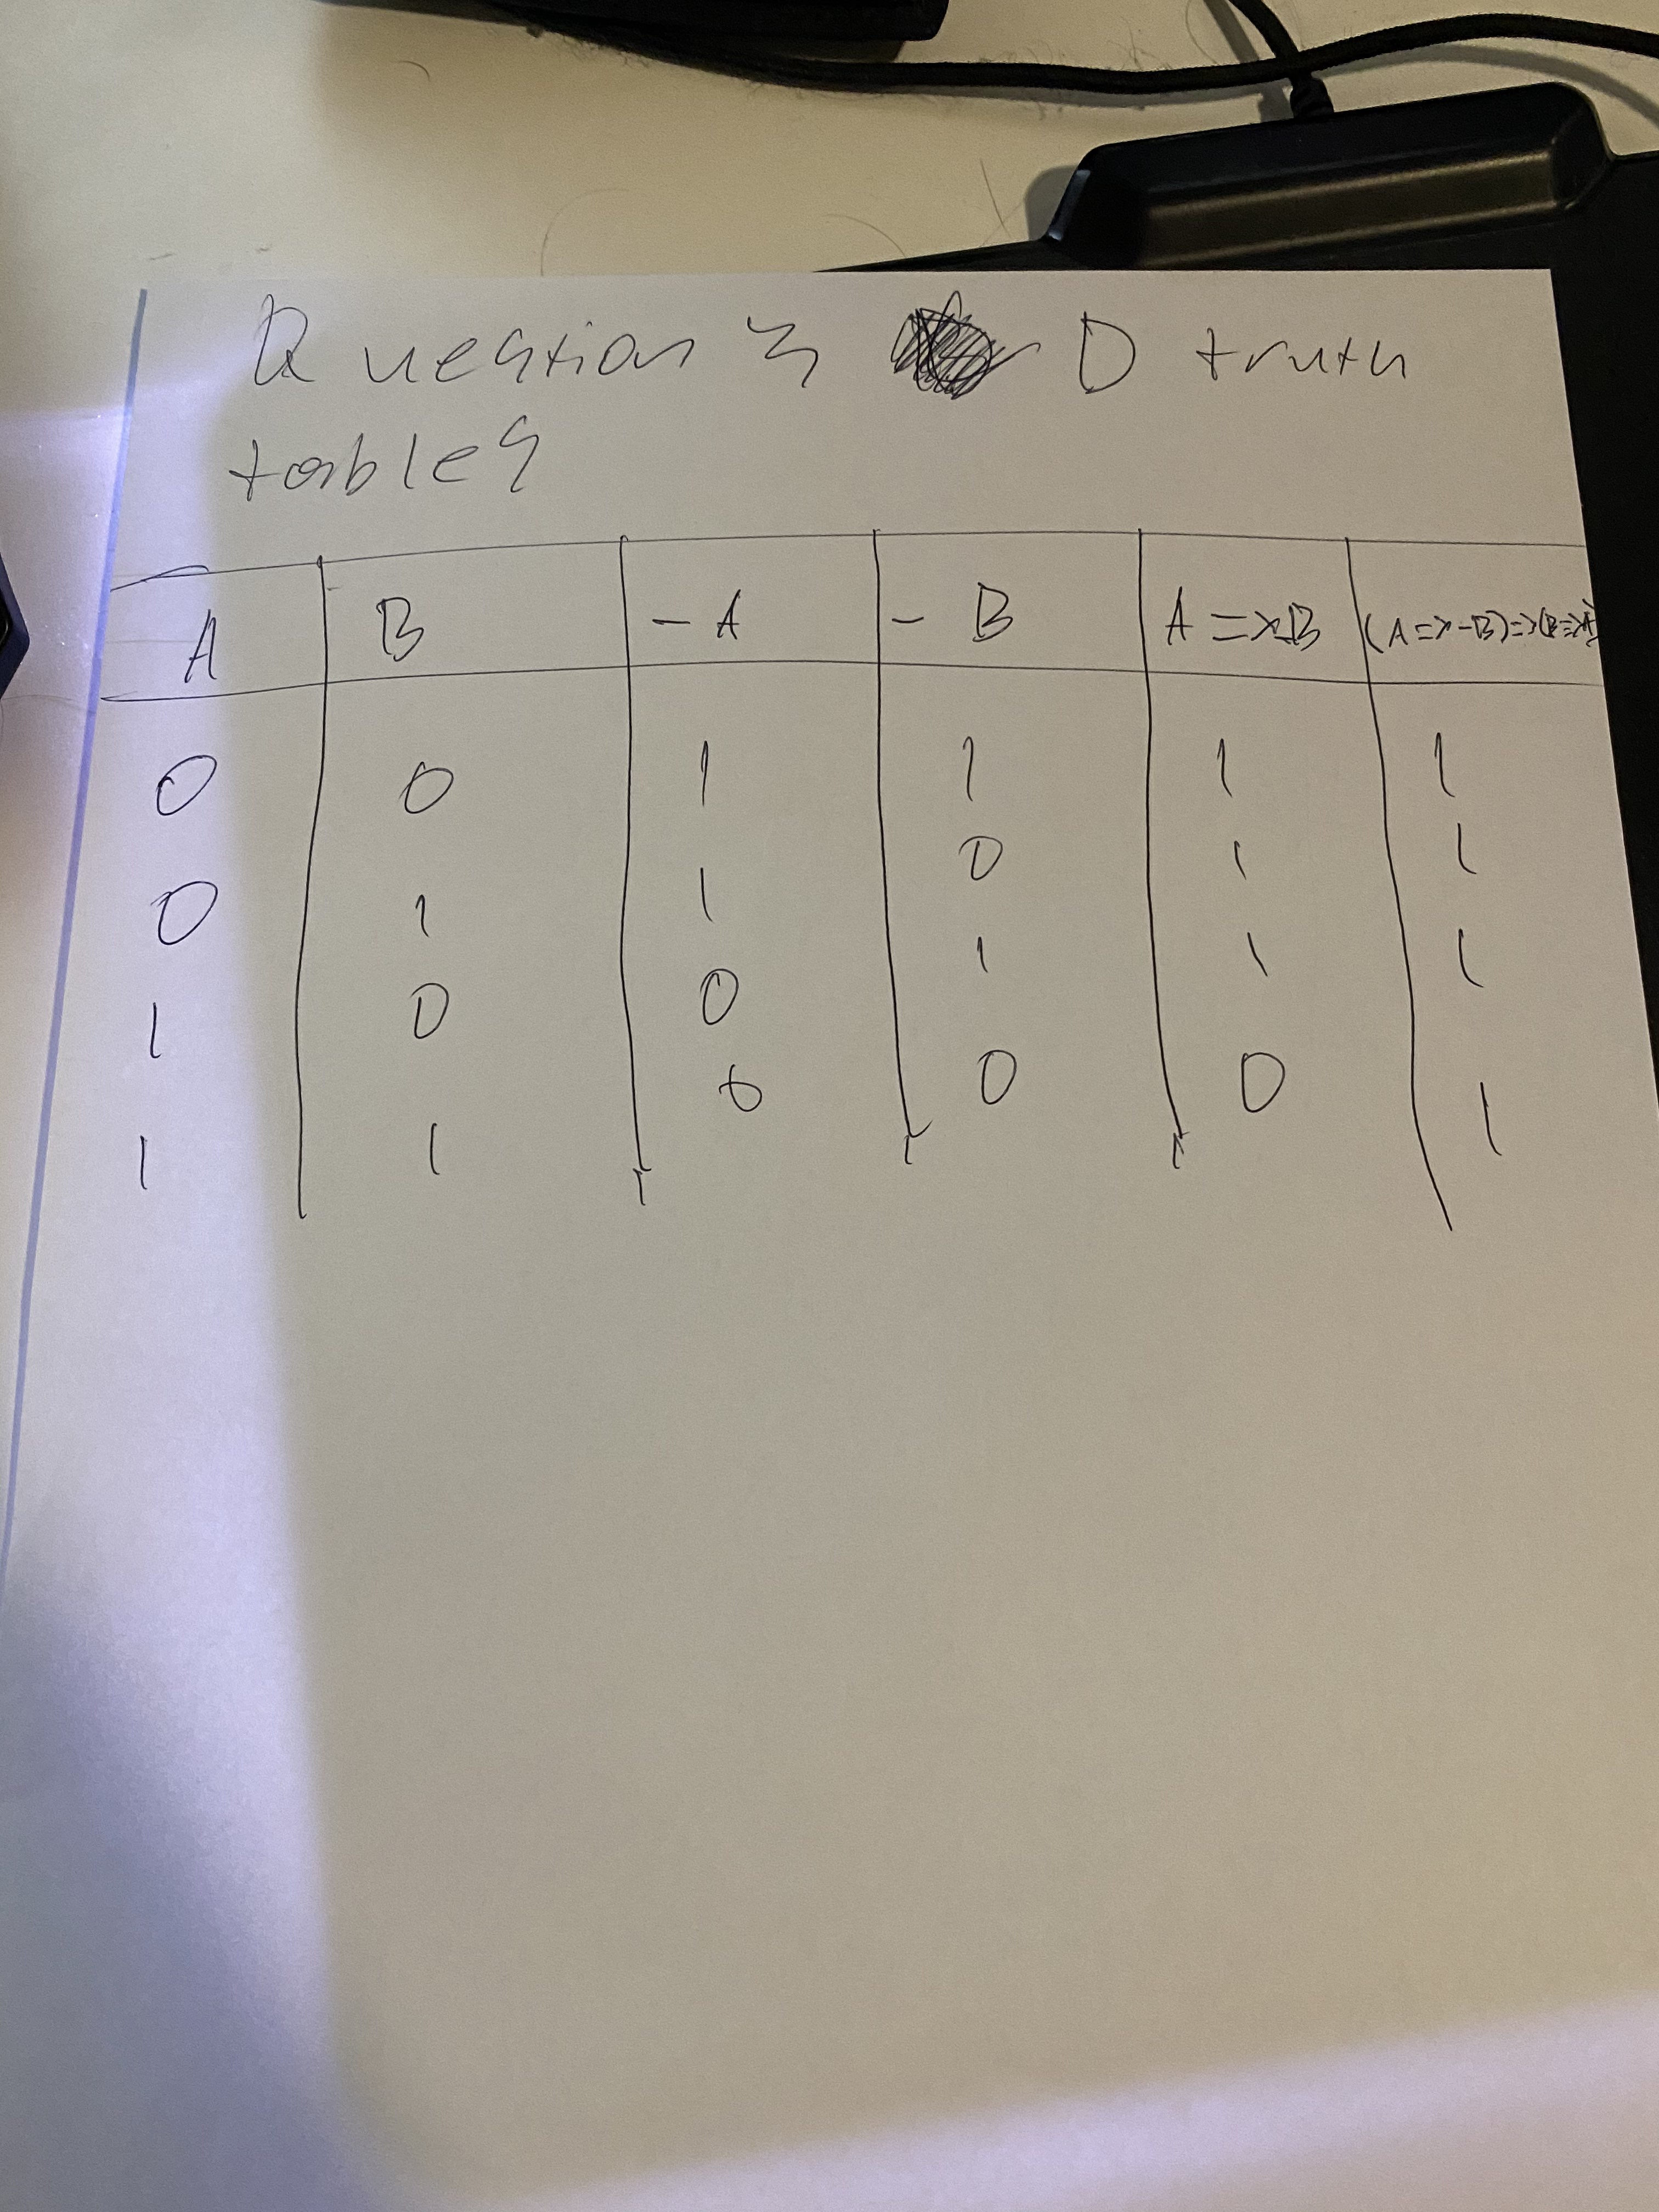 Question 3 D truth
tables
A B -A - B A => B (A => -B) => (B => A)
0 0 1 1 1 1
0 1 1 0 1 1
1 0 0 1 1 1
1 1 0 0 0 1